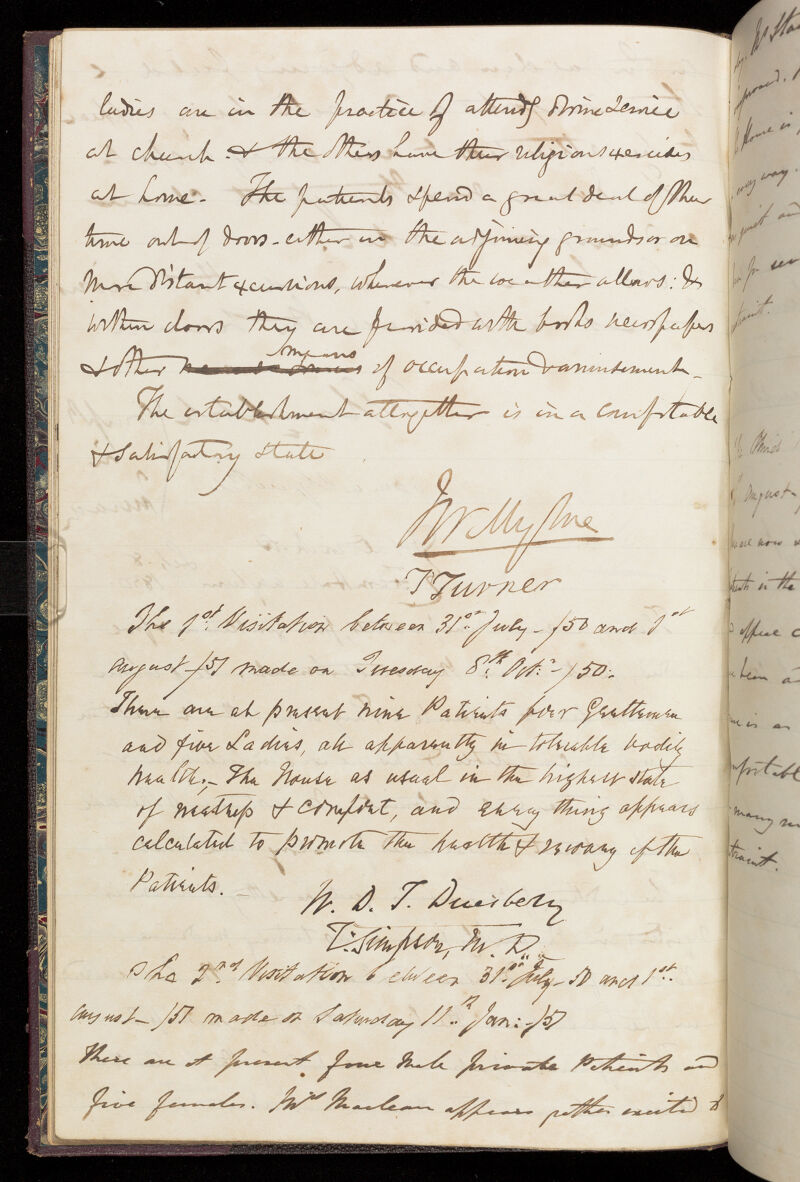 ladies are in the practice of attendg divine service
at church. & the others have their religious exercises
at home - The patients spend a great deal of their
time out of doors - either in the adjoining grounds or on
more distant excursions, whenever the weather allows: &
within doors they are furnished with books newspapers
& other means of occupation & amusement -
The establishment altogether is in a comfortable
& satisfactory state
J W Mylne
T Turner
The 1st. Visitation between 31st. July - /50 and 1st
august - /51 made on Tuesday 8th. Octr. - /50:
There are at present nine Patients four Gentlemen
and five Ladies, all apparently in tolerable bodily
health; - The House as usual in the highest state
of neatness & comfort, and every thing appears
calculated to promote the health & recovery of the
Patients. -
W. D. T. Duesbery
T. Simpson, M. D.
The 2nd. Visitation between 31st. July - 50 and 1st.
august - /51 made on Saturday 11th. Jan: - /51
There are at present four male private Patients and
five females. Mrs Maclean appears rather excited &
Mr
Home is
way.
quiet and
for
August
are now
in the
office
been
is as
comfortabl
many